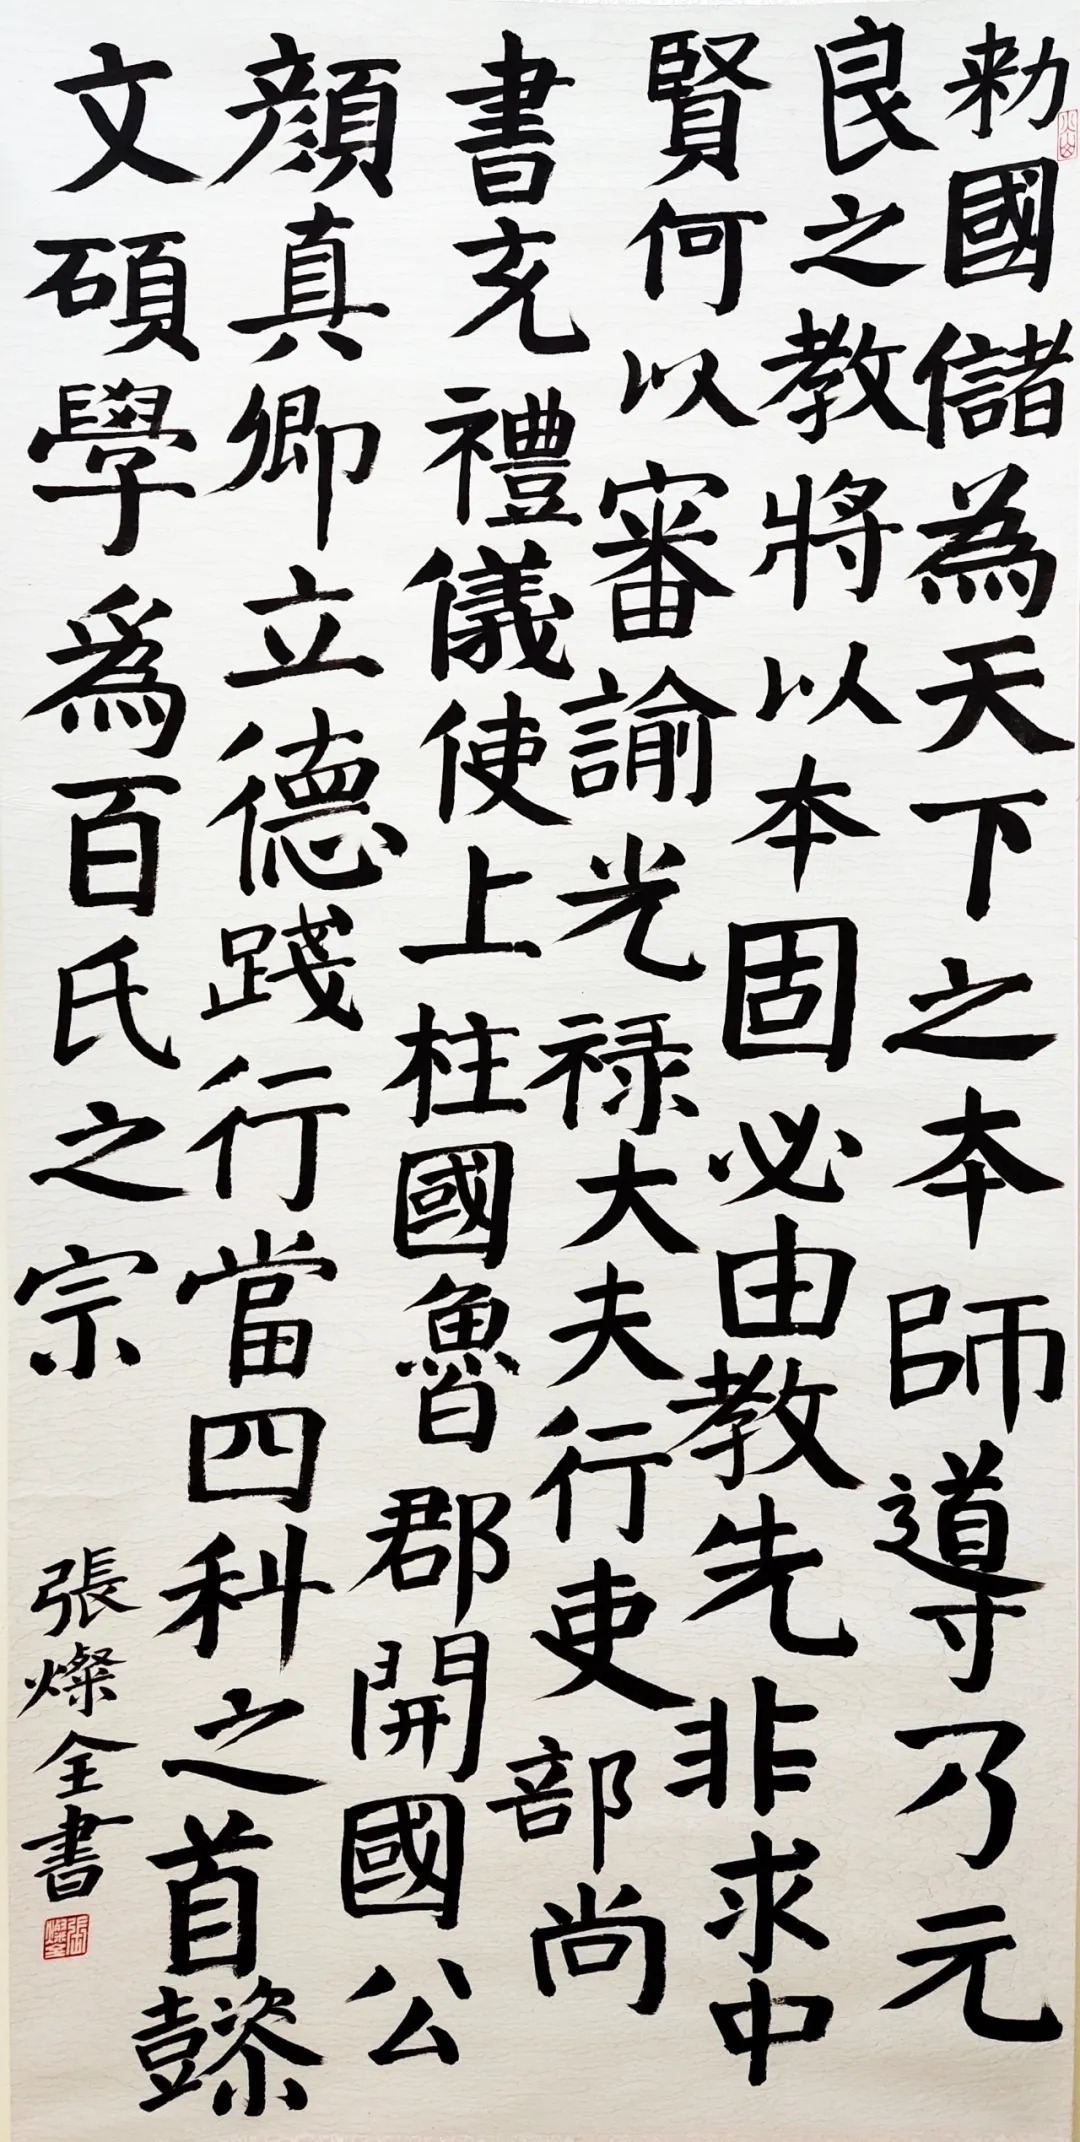 勑國儲為天下之本師導乃元
良之教將以本固必由教先非求中
賢何以審諭光禄大夫行吏部尚
書充禮儀使上柱國魯郡開國公
顔真卿立德踐行當四科之首懿
文碩學爲百氏之宗
張燦全書
張燦全